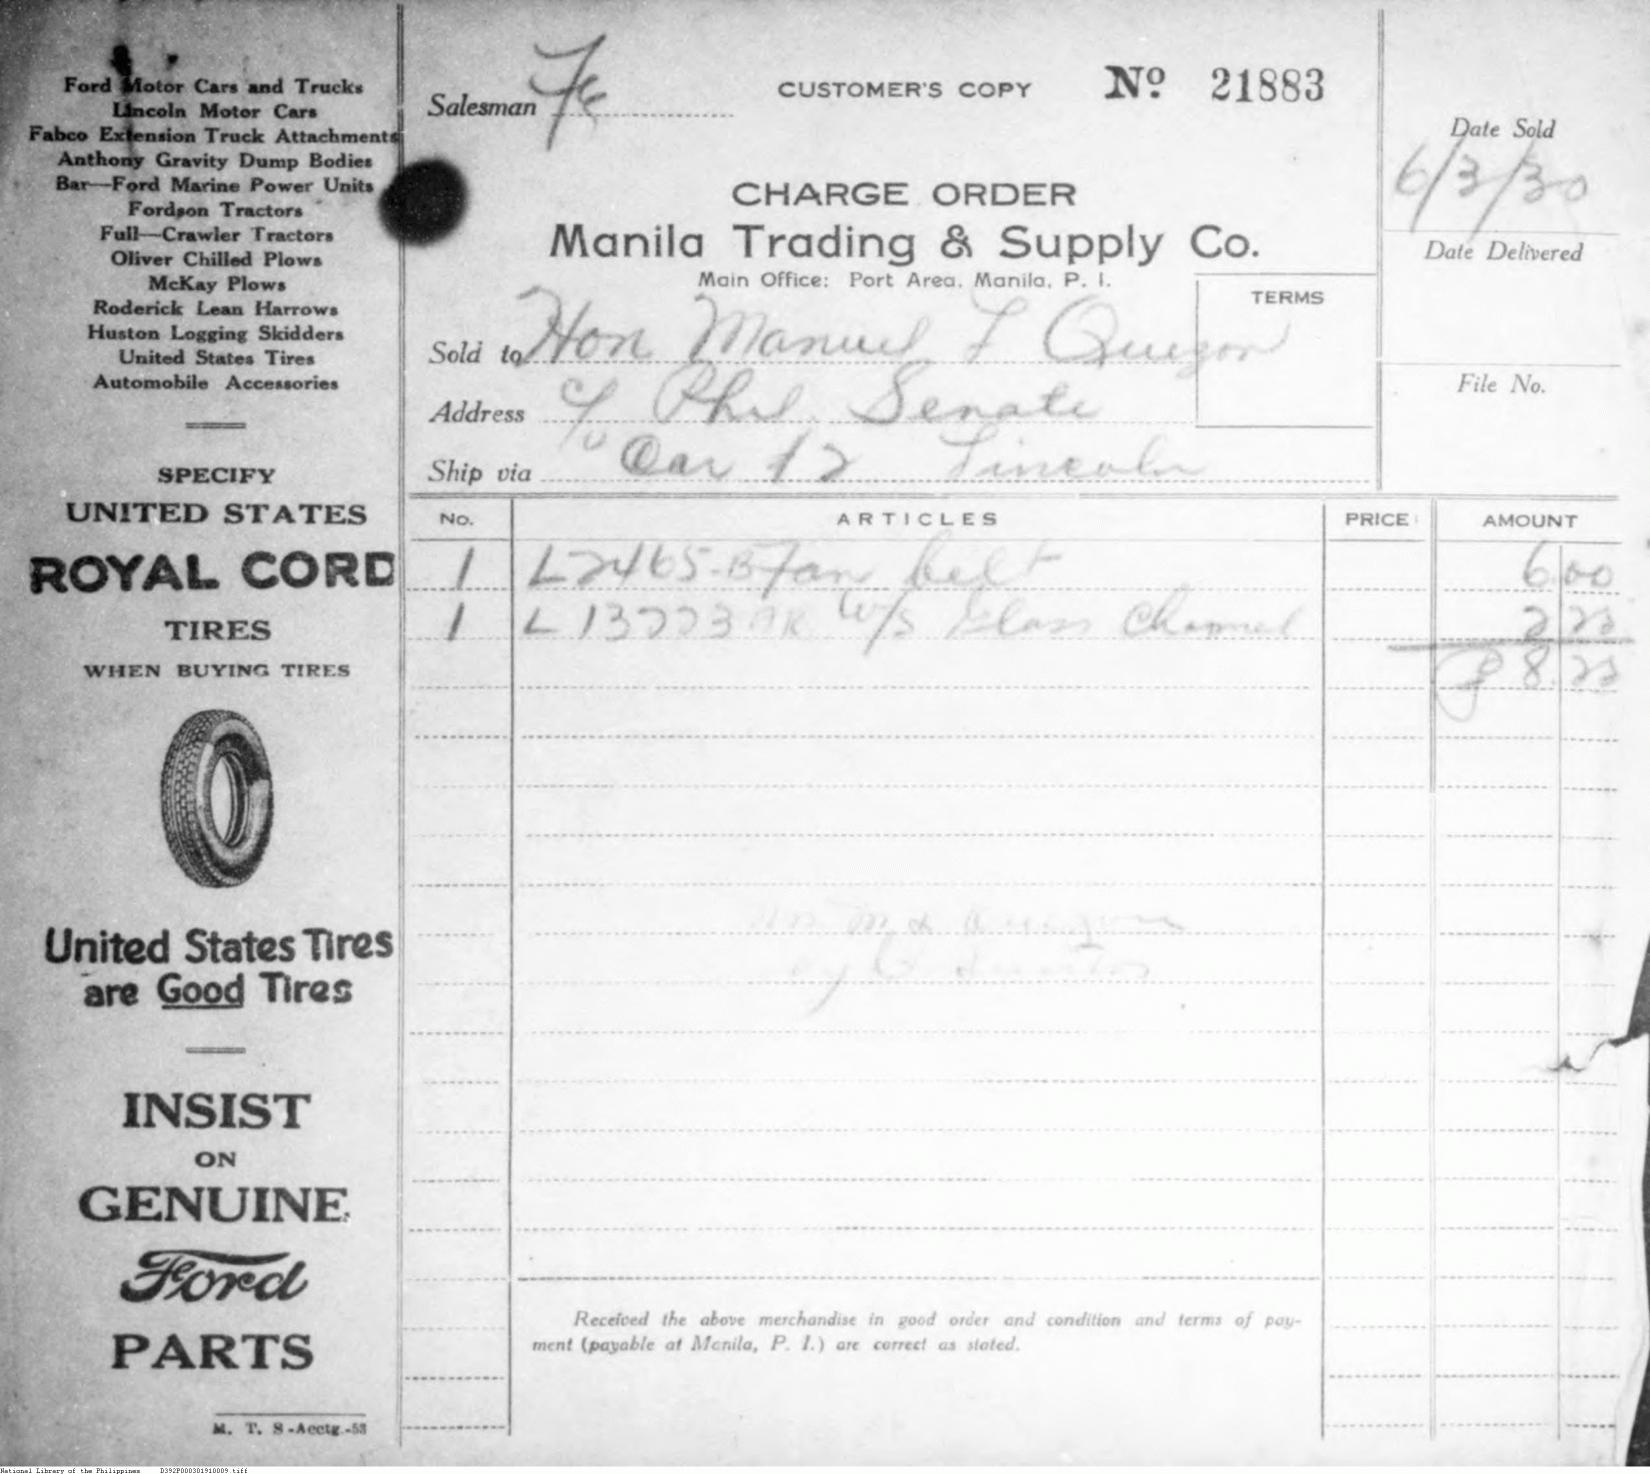 Ford Motor Cars and Trucks
Lincoln Motor Cars
Fabco Extension Truck Attachments
Anthony Gravity Dump Bodies
Bar—Ford Marine Power Units
Fordson Tractors
Full—Crawler Tractors
Oliver Chilled Plows
McKay Plows
Roderick Lean Harrows
Huston Logging Skidders
United States Tires
Automobile Accessories
SPECIFY
UNITED STATES
ROYAL CORD
TIRES
WHEN BUYING TIRES
United States Tires
are Good Tires
INSIST
ON
GENUINE
Ford
PARTS
M. T. S-Acctg.-53
Salesman
CUSTOMER'S COPY Nº 21883
CHARGE ORDER
Manila Trading & Supply Co.
Main Office: Port Area, Manila, P. I.
TERMS
Sold to Hon Manuel L Quezon
Address c/o Phil. Senate
Ship via Car 12 Lincoln
Date Sold
6/3/30
Date Delivered
File No.
No. ARTICLES PRICE AMOUNT
1 L2465-B Fan belt 6.00
1 L 13223 W/S Glass Channel 2.22
₱ 8.22
M L Quezon
by
Received the above merchandise in good order and condition and terms of pay-
ment (payable at Manila, P. I.) are correct as stated.
National Library of the Philippines D392P000301910009.tiff